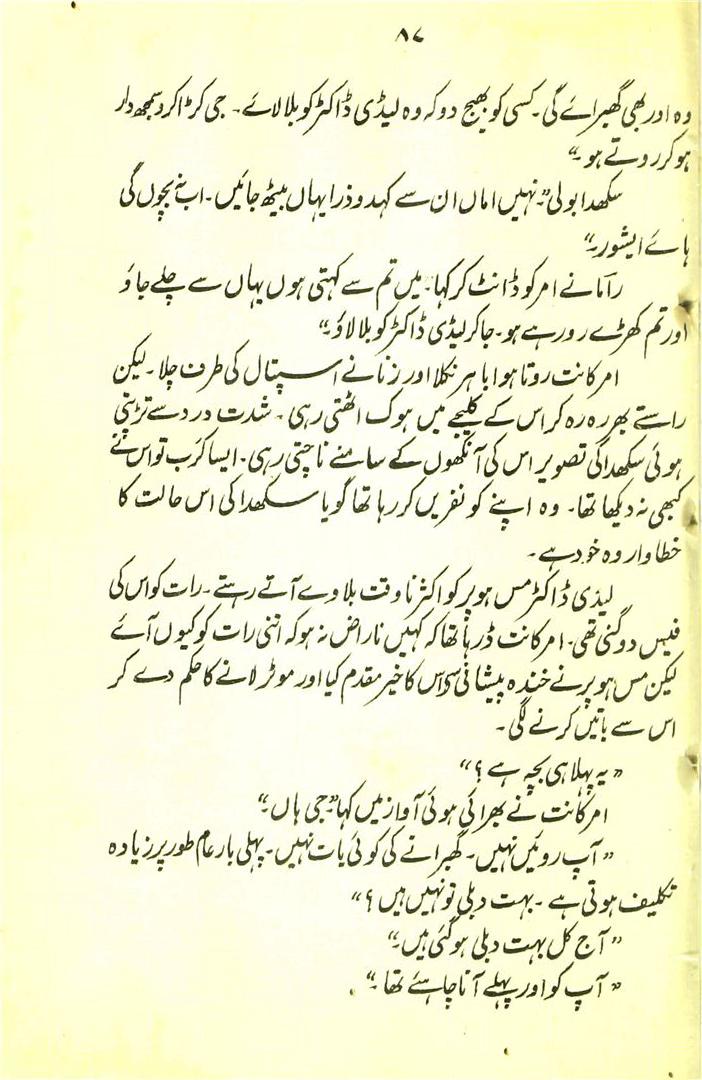 ۸۷
وہ اور بھی گھبرائے گی۔ کسی کو بھیج دو کہ وہ لیڈی ڈاکٹر کو بلا لائے۔ جی کڑا کرو سمجھ دار
ہو کر روتے ہو۔“
سکھدا بولی ”نہیں اماں ان سے کہدو ذرا یہاں بیٹھ جائیں۔ اب نہ بچوں گی
ہائے ایشور۔“
رآما نے امر کو ڈانٹ کر کہا۔ میں تم سے کہتی ہوں یہاں سے چلے جاؤ
اور تم کھڑے رو رہے ہو۔ جا کر لیڈی ڈاکٹر کو بلا لاؤ۔“
امرکانت روتا ہوا باہر نکلا اور زنانے اسپتال کی طرف چلا۔ لیکن
راستے بھر رہ رہ کر اس کے کلیجے میں ہوک اٹھتی رہی۔ شدت درد سے تڑپتی
ہوئی سکھدا کی تصویر اس کی آنکھوں کے سامنے ناچتی رہی۔ ایسا کرب تو اس نے
کبھی نہ دیکھا تھا۔ وہ اپنے کو نفریں کر رہا تھا گویا سکھدا کی اس حالت کا
خطاوار وہ خود ہے۔
لیڈی ڈاکٹر مس ہوپر کو اکثر ناوقت بلاوے آتے رہتے۔ رات کو اس کی
فیس دوگنی تھی۔ امرکانت ڈر رہا تھا کہ کہیں ناراض نہ ہو کہ اتنی رات کو کیوں آئے
لیکن مس ہوپر نے خندہ پیشانی سے اس کا خیر مقدم کیا اور موٹر لانے کا حکم دے کر
اس سے باتیں کرنے لگی۔
”یہ پہلا ہی بچہ ہے؟“
امرکانت نے بھرائی ہوئی آواز میں کہا ”جی ہاں۔“
”آپ روئیں نہیں۔ گھبرانے کی کوئی بات نہیں۔ پہلی بار عام طور پر زیادہ
تکلیف ہوتی ہے۔ بہت دبلی تو نہیں ہیں؟“
”آج کل بہت دبلی ہو گئی ہیں۔“
”آپ کو اور پہلے آنا چاہئے تھا۔“